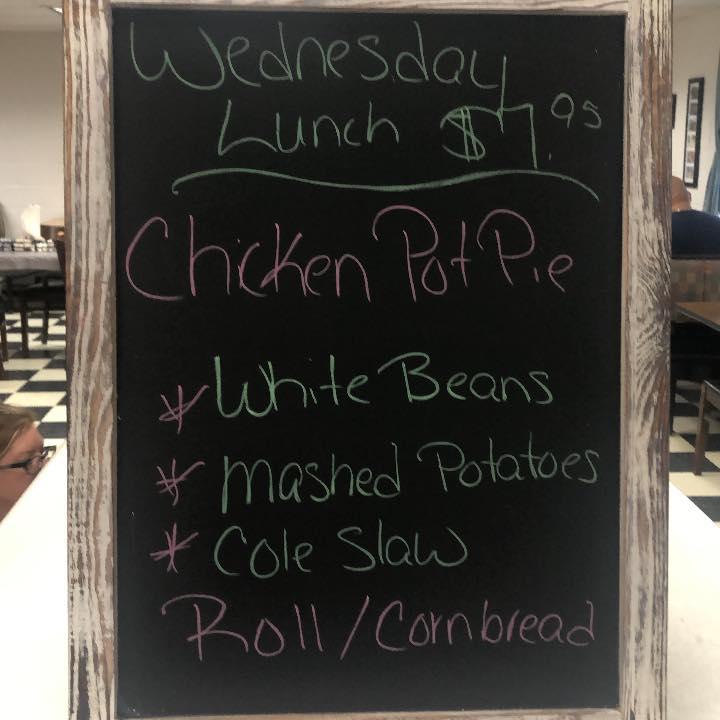 Wednesday
Lunch $7.95
Chicken Pot Pie
* White Beans
* Mashed Potatoes
* Cole Slaw
Roll/Cornbread